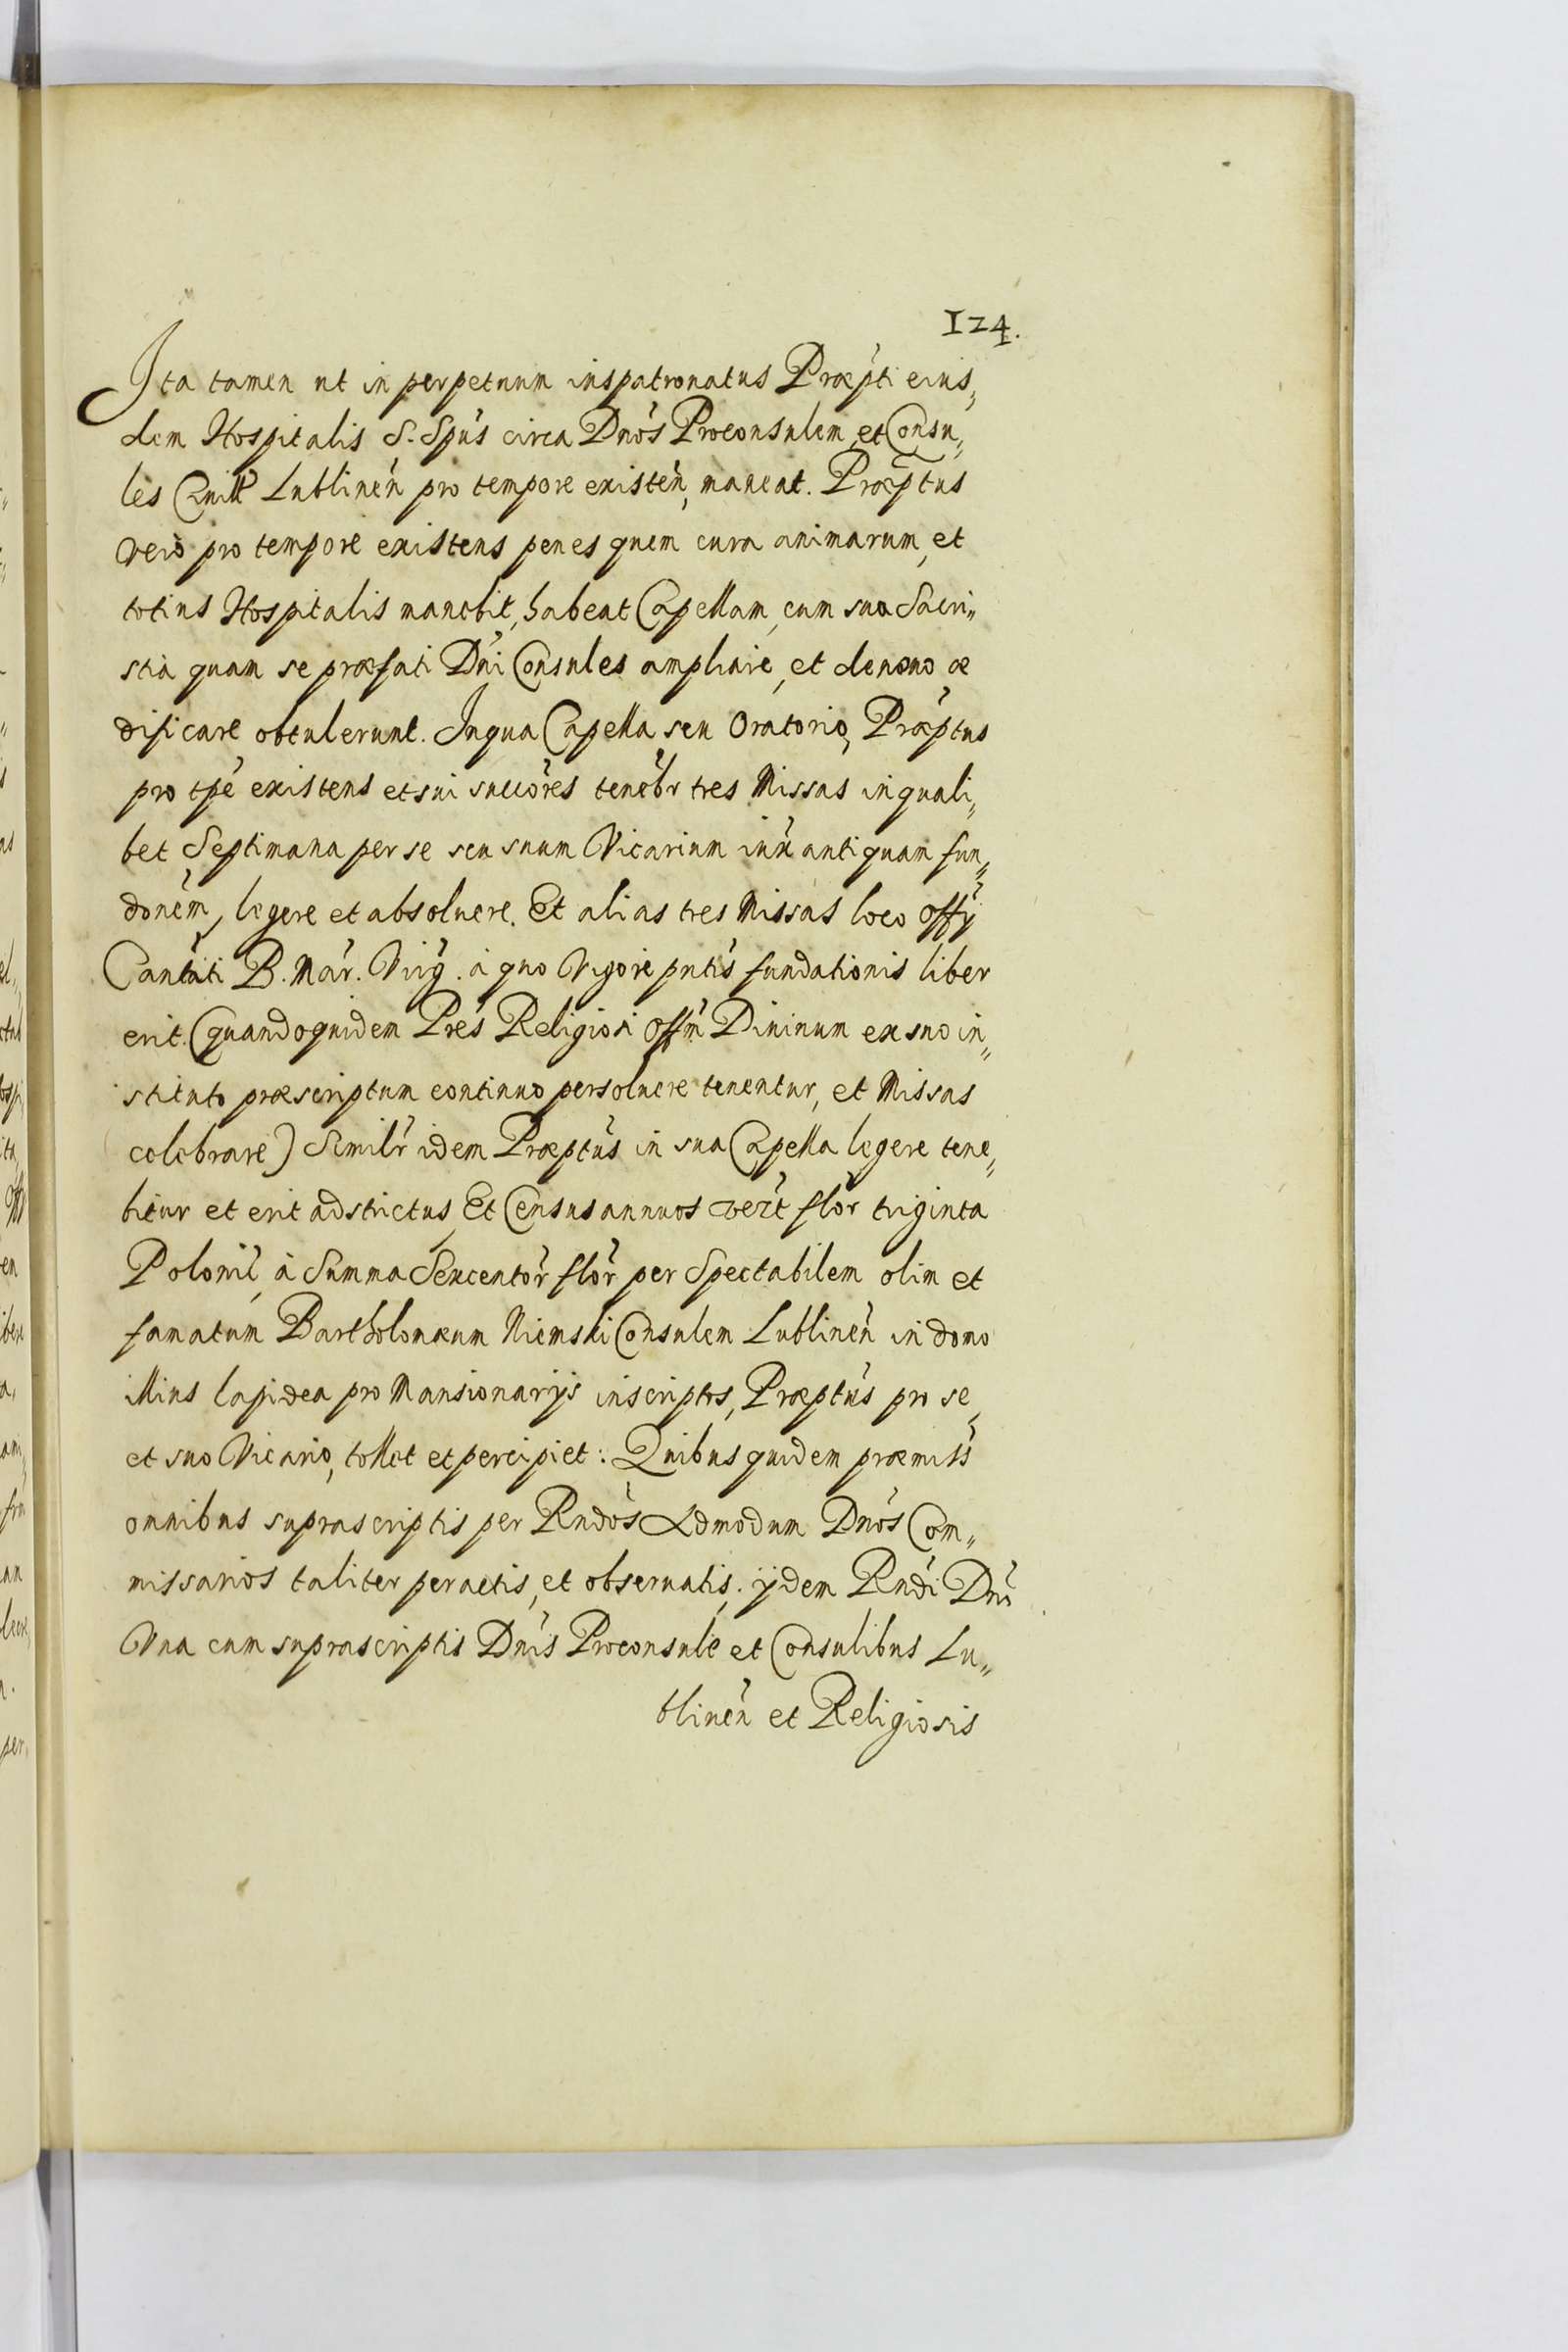 124.
Ita tamen ut in perpetuum iuspatronatus Præpti eius„
dem Hospitalis S. Spũs circa Dnõs Proconsulem, et Consu„
les Lublineñ pro tempore existeñ, maneat. Præptus
vero pro tempore existens penes quem cura animarum, et
totius Hospitalis manebit, habeat Capellam, cum sua Sacri„
stia quam se præfati Dñi Consules ampliare, et denouo æ
dificare obtulerunt. In qua Capella seu Oratorio, Præptus
pro tpẽ existens et sui succõres tenebr̃ tres Missas in quali„
bet Septimana per se seu suum Vicarium iux̃ antiquam fun„
donẽm, legere et absoluere. Et alias tres Missas loco Offỹ
Cantãti B. Mar̃. Virg̃. à quo Vigore pntĩs fundationis liber
erit. (quandoquidem Prẽs Religiosi Offm̃ Diuinum ex suo in„
stituto præscriptum continuo persoluere tenentur, et Missas
celebrare) Similr̃ idem Præptũs in sua Capella legere tene„
bitur et erit adstrictus, Et Census annuos flor̃ triginta
à Summa Sexcentor̃ flor̃ per Spectabilem olim et
famatum Bartholomæum Niemski Consulem Lublineñ in domo
illius lapidea pro Mansionarijs inscriptos, Præptũs pro se,
et suo Vicario, tollet et percipiet: Quibus quidem præmiss̃
omnibus suprascriptis per Rndõs Admodum Dnõs Com„
missarios taliter peractis, et obseruatis, ijdem Rndĩ Dnĩ
Vna cum suprascriptis Dnĩs Proconsule et Consulibus Lu„
blineñ et Religiosis